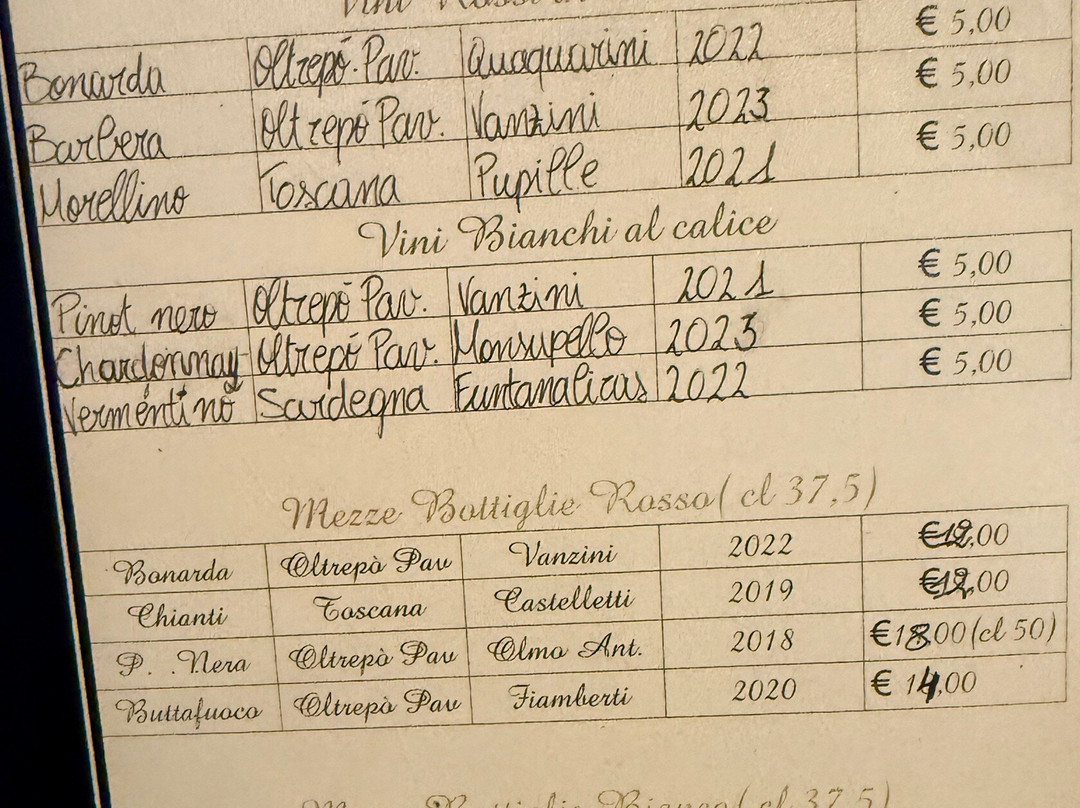 Vini Rossi
Bonarda Oltrepó. Pav. Quaquarini 2022 € 5,00
Barbera Oltrepó Pav. Vanzini 2023 € 5,00
Morellino Toscana Pupille 2021 € 5,00
Vini Bianchi al calice
Pinot nero Oltrepó Pav. Vanzini 2021 € 5,00
Chardonnay Oltrepó Pav. Monsupello 2023 € 5,00
Vermentino Sardegna Funtanaliras 2022 € 5,00
Mezze Bottiglie Rosso( cl 37,5)
Bonarda Oltrepò Pav Vanzini 2022 €12,00
Chianti Toscana Castelletti 2019 €12,00
P. . Nera Oltrepò Pav Olmo Ant. 2018 €18,00(cl 50)
Buttafuoco Oltrepò Pav Fiamberti 2020 € 14,00
Bottiglie Bianco( cl 37,5)